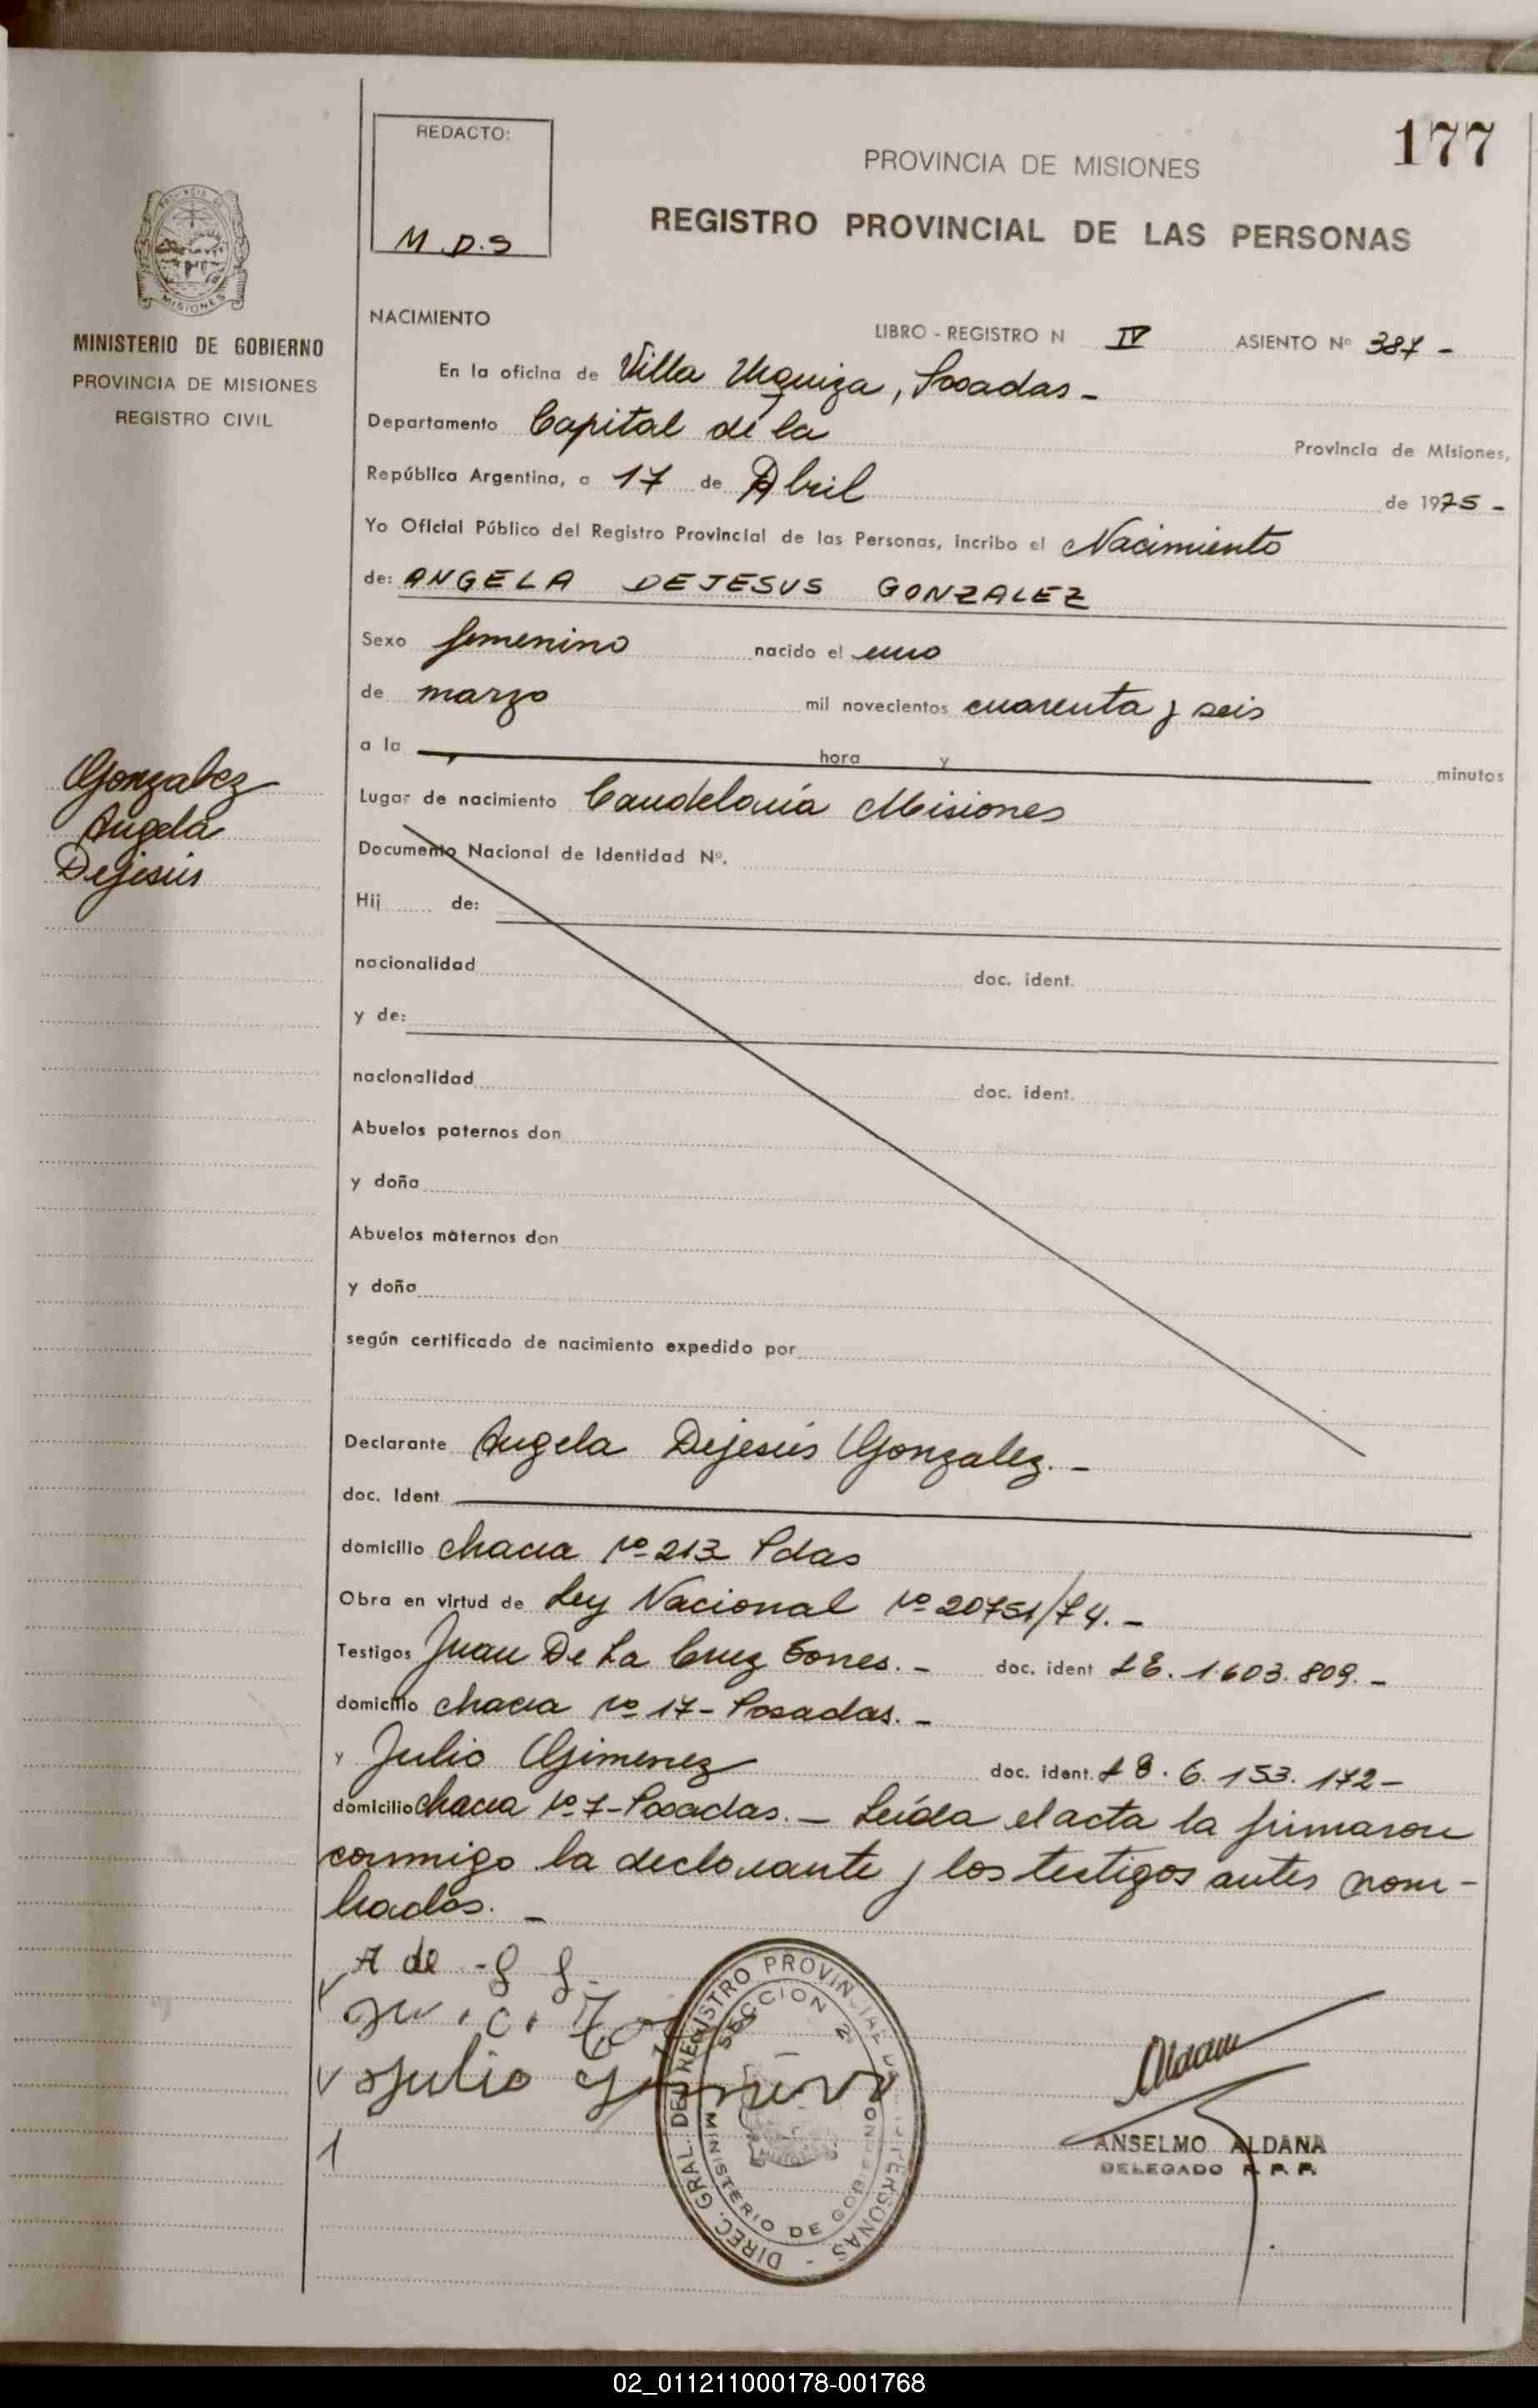 177
REDACTO:
M.D.S
PROVINCIA DE MISIONES
REGISTRO PROVINCIAL DE LAS PERSONAS
MISIONES
MINISTERIO DE GOBIERNO
PROVINCIA DE MISIONES
REGISTRO CIVIL
NACIMIENTO
LIBRO - REGISTRO N IV ASIENTO Nº 387 -
En la oficina de Villa Urquiza, Posadas -
Departamento Capital de la Provincia de Misiones,
República Argentina, a 17 de Abril de 1975 -
Yo Oficial Público del Registro Provincial de las Personas, incribo el Nacimiento
de: ANGELA DEJESUS GONZALEZ
Sexo femenino nacido el uno
de marzo mil novecientos cuarenta y seis
a la hora y minutos
Gonzalez
Angela
Dejesús
Lugar de nacimiento Candelaria Misiones
Documento Nacional de Identidad Nº.
Hij de:
nacionalidad doc. ident.
y de:
nacionalidad doc. ident.
Abuelos paternos don
y doña
Abuelos maternos don
y doña
según certificado de nacimiento expedido por
Declarante Angela Dejesús Gonzalez. -
doc. Ident
domicilio chacra Nº 213 Pdas
Obra en virtud de Ley Nacional Nº 20751/74. -
Testigos Juan De La Cruz - doc. ident L E. 1.603.809. -
domicilio chacra Nº 17 - Posadas. -
y Julio Gimenez doc. ident. 6.153.172 -
domicilio chacra Nº 7 - Posadas. - Leída el acta la firmaron
conmigo la declarante y los testigos antes nom-
brados. -
A de - g g -
Julio
DIREC. GRAL. DEL REGISTRO PROVINCIAL DE LAS PERSONAS -
SECCION 2ª
MINISTERIO DE GOBIERNO
ANSELMO ALDANA
DELEGADO R. P. P.
02_011211000178-001768